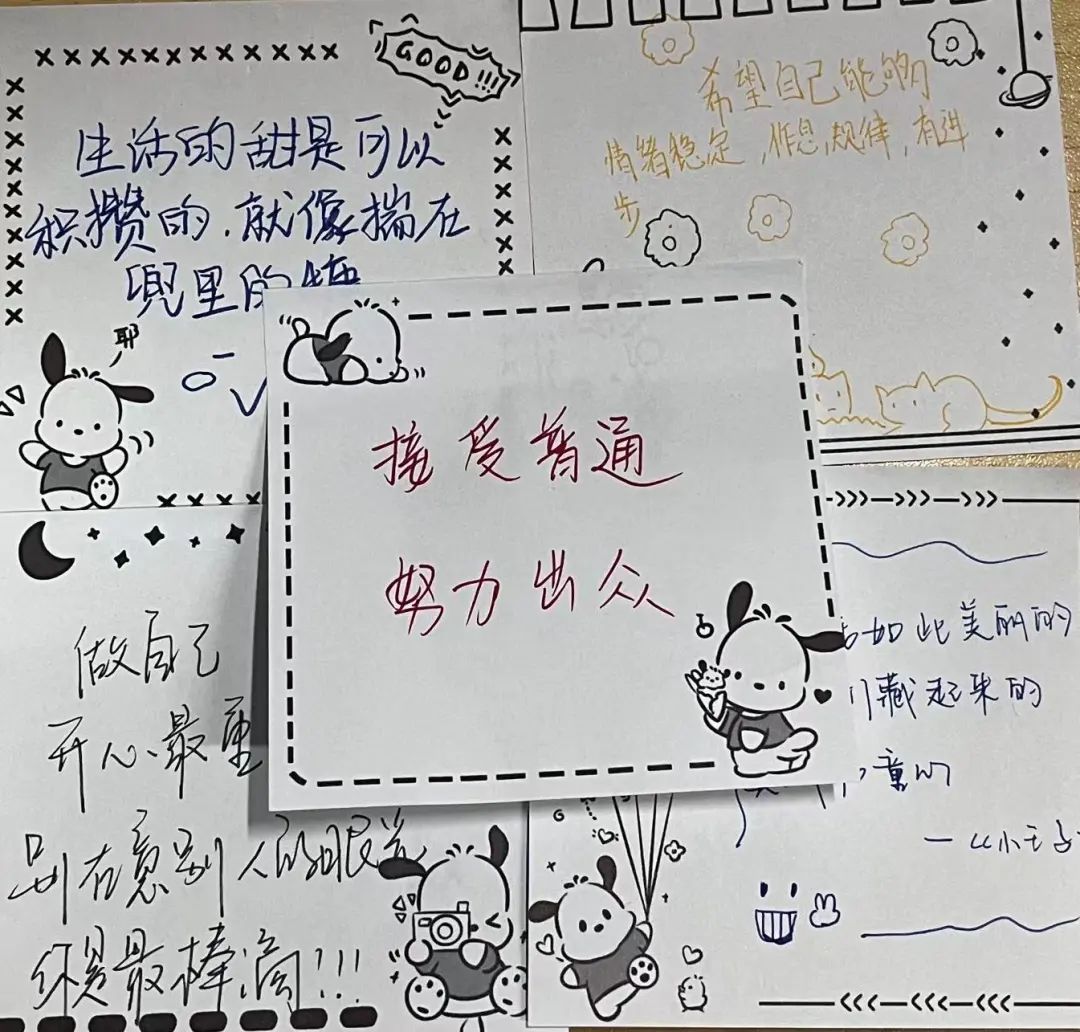 GOOD!!!
生活的甜是可以
积攒的,就像揣在
兜里的糖
耶
希望自己能够
情绪稳定,作息规律,有进
步
接受普通
努力出众
做自己
开心最重
别在意别人的眼光
你是最棒滴!!!
如此美丽的
藏起来的
童心
—《小王子